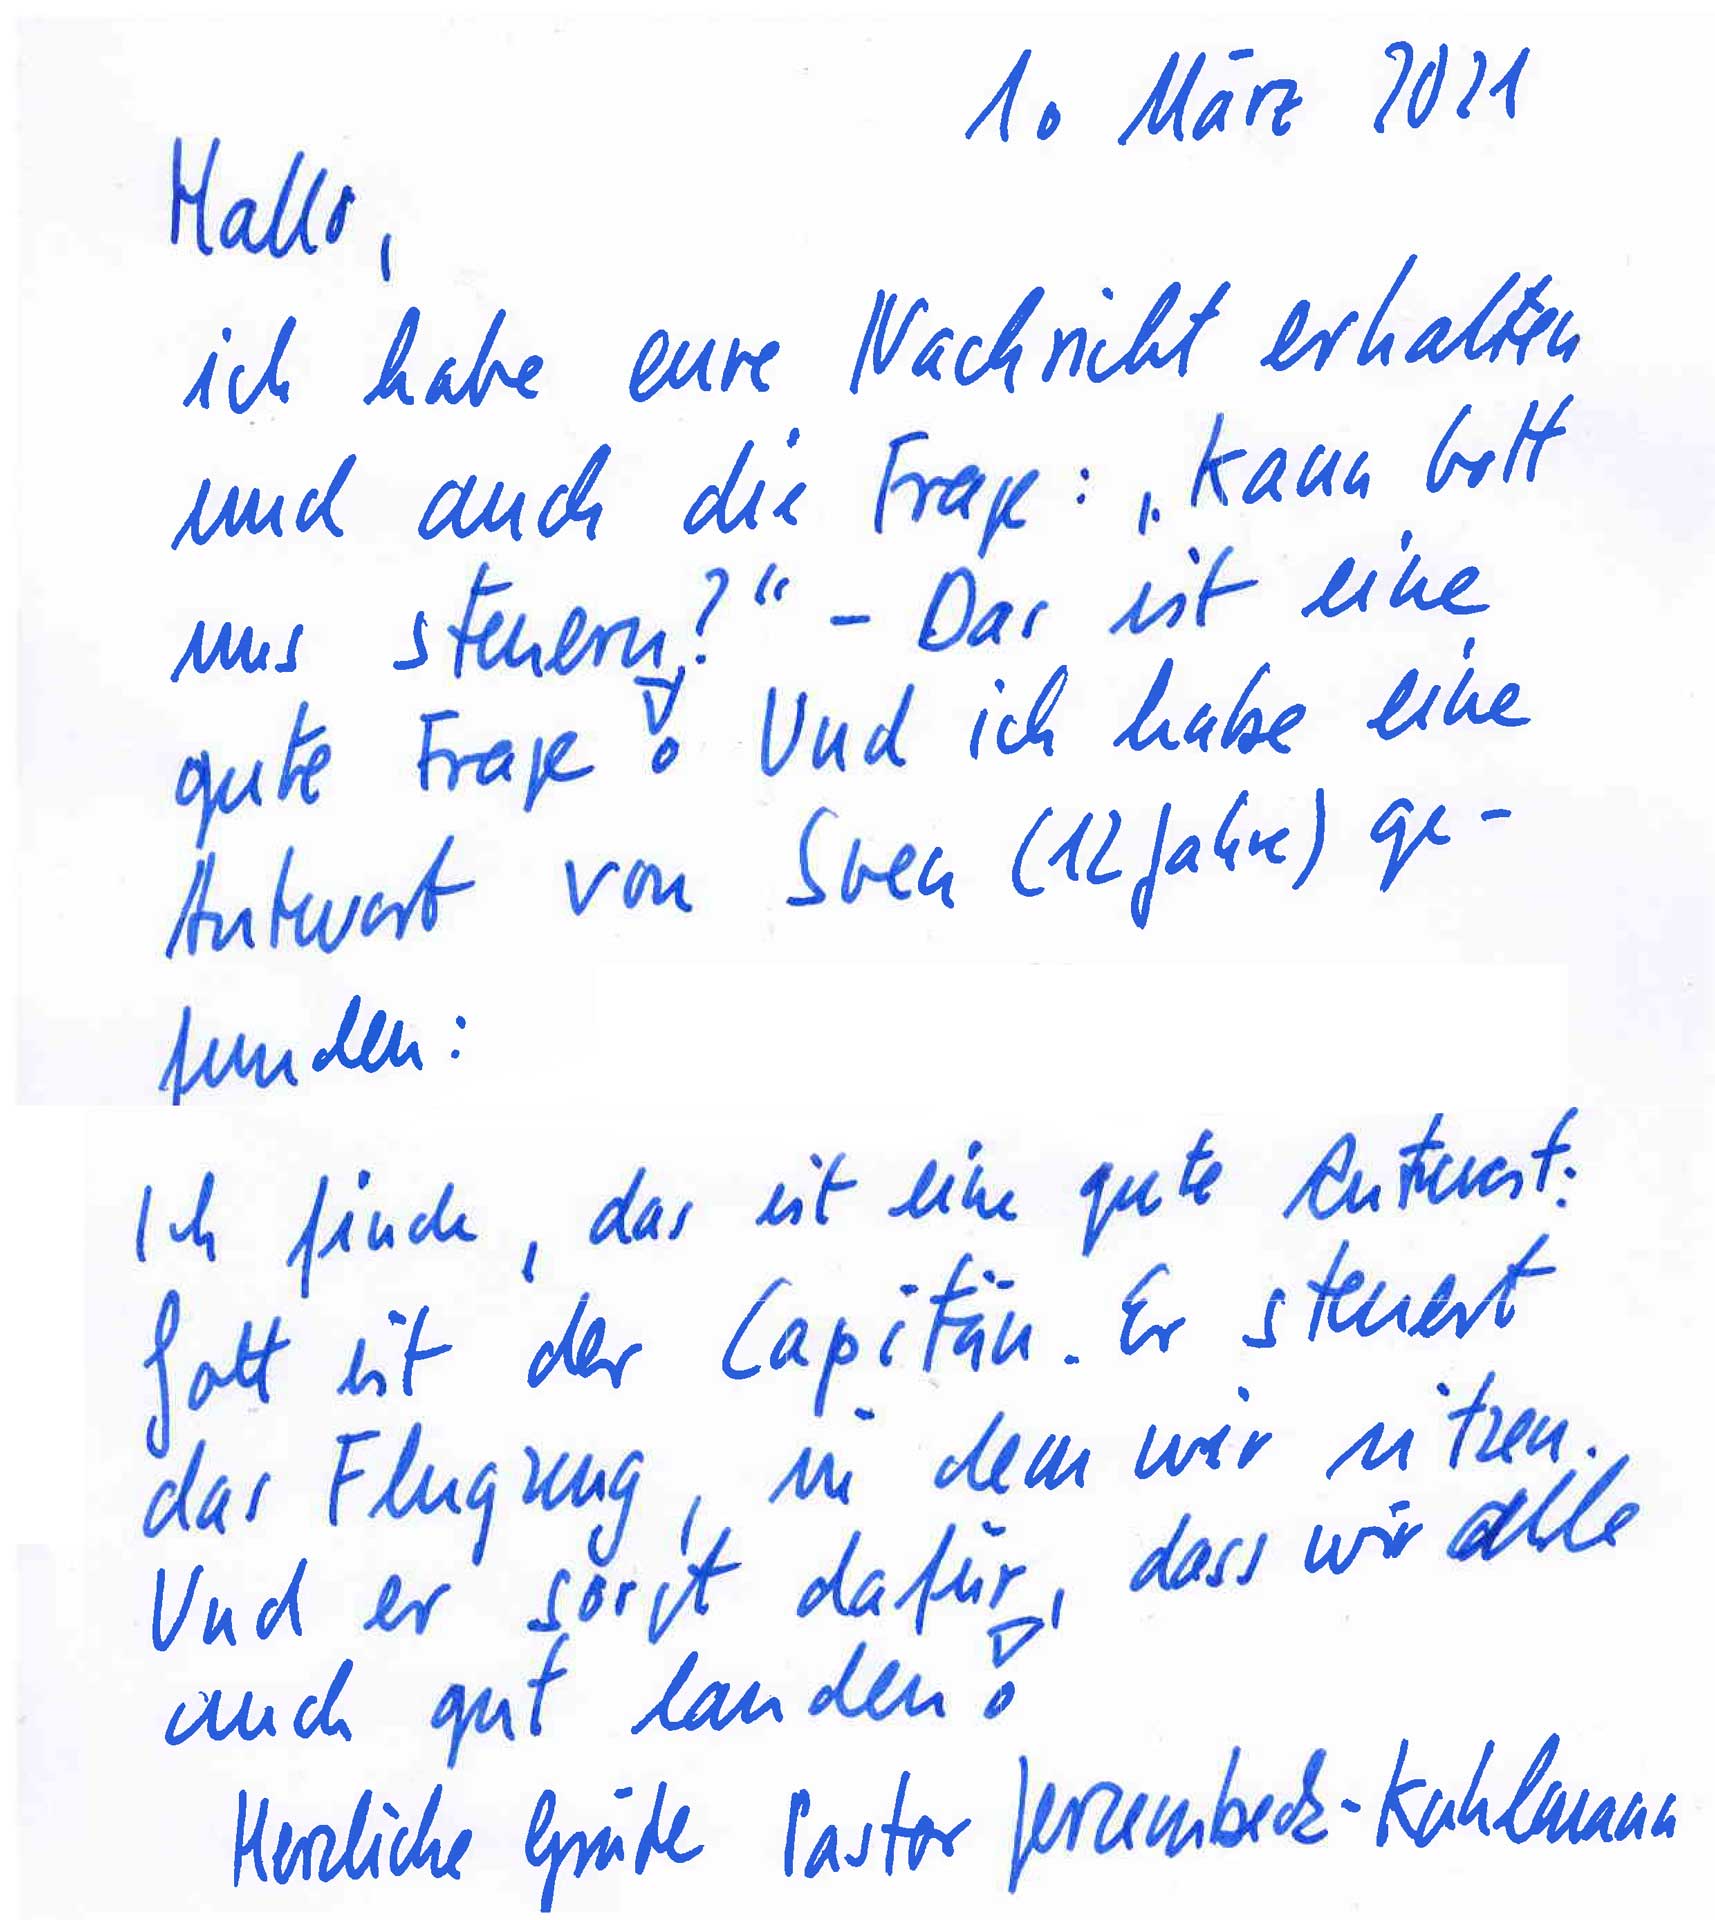 1. März 2021
Hallo,
ich habe eure Nachricht erhalten
und auch die Frage: „Kann Gott
uns steuern?“ – Das ist eine
gute Frage! Und ich habe eine
Antwort von Sven (12 Jahre) ge-
funden:
Ich finde, das ist eine gute Antwort:
Gott ist der Capitän. Er steuert
das Flugzeug, in dem wir sitzen.
Und er sorgt dafür, dass wir alle
auch gut landen!
Herzliche Grüße Pastor Jerzembeck-Kuhlmann